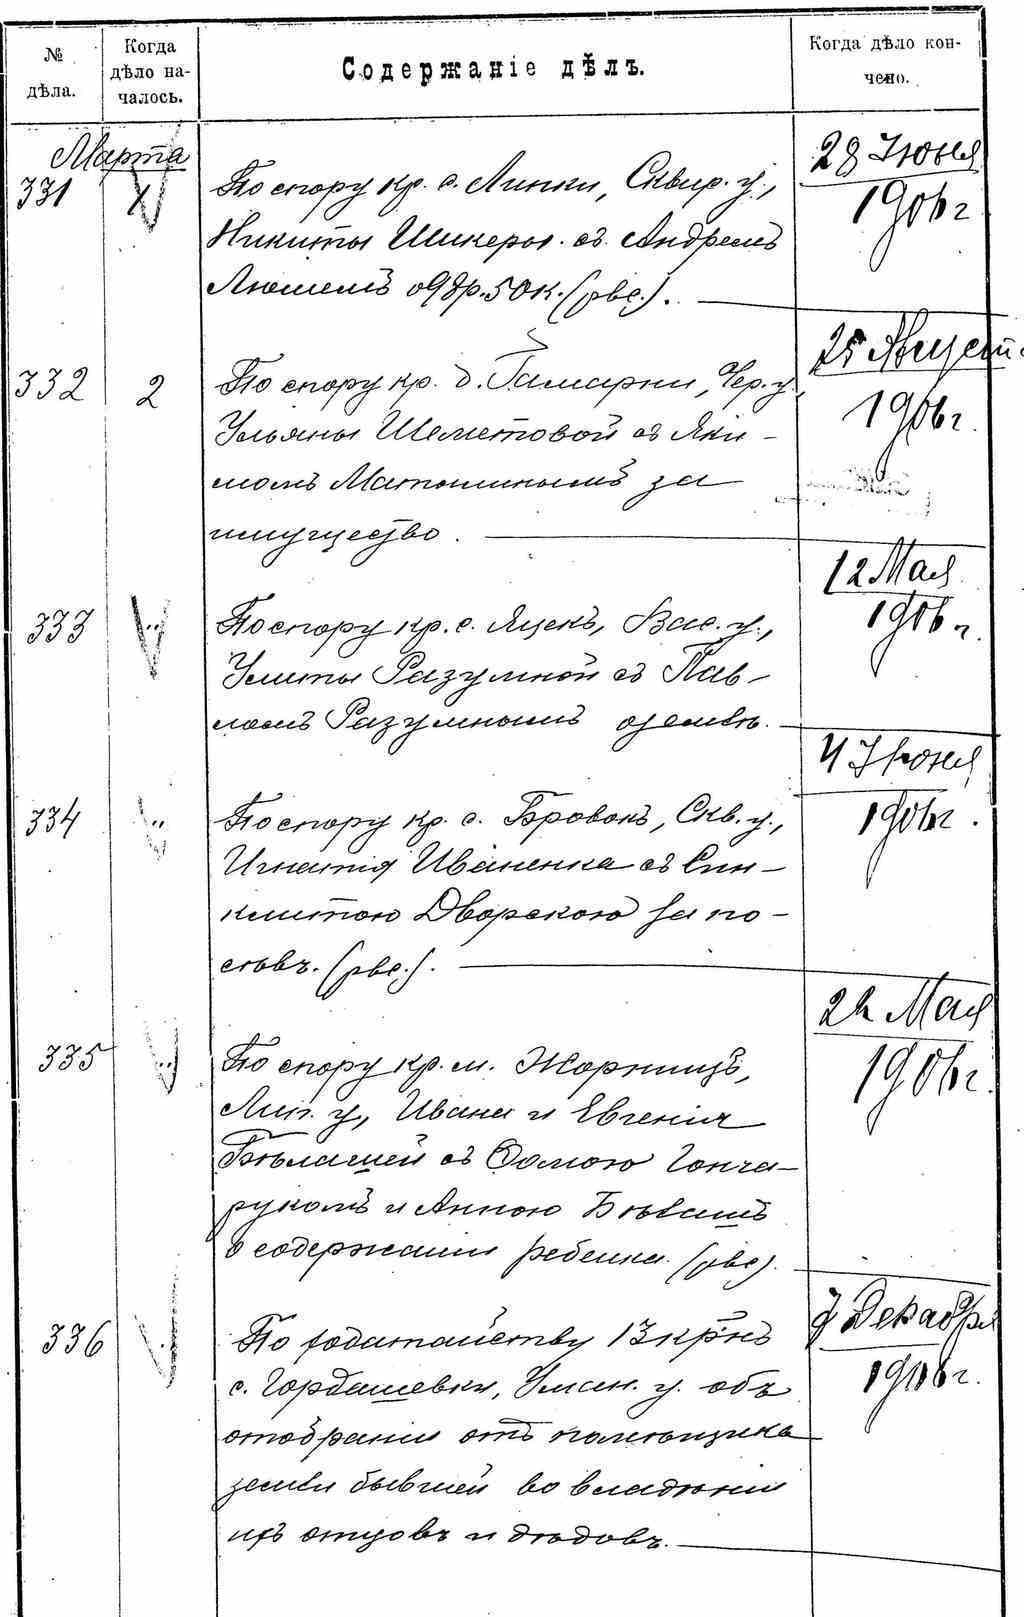 № дѣла.
Когда дѣло на-
чалось.
Содержаніе дѣлъ.
Когда дѣло кон-
чено.
Марта
331
По спору кр. с. Липки, Сквир. у.,
Никиты Шикеры съ Андреемъ
о 98 р. 50 к. (рвс.).
28 Іюня
1906 г
332
2
По спору кр. д. Гамарни, Чер. у.,
Ульяны Шеметовой съ Яки-
момъ за
имущество.
25 Август.
1906 г.
333
По спору кр. с. Яцекъ, Вас. у.,
Улиты Разумной съ Пав-
ломъ Разумнымъ о землѣ.
12 Мая
1906 г.
334
По спору кр. с. Бровокъ, Скв. у.,
Игнатія Иваненка съ Син-
клитою Дворскою за по-
сѣвъ. (рвс.).
4 Іюня
1906 г.
335
По спору кр. м. Жорнищъ,
Лип. у., Ивана и Евгенія
Бѣлашей съ Фомою Гонча-
рукомъ и Анною Бѣлашъ
о содержаніи ребенка. (рвс).
22 Мая
1906 г.
336
По ходатайству 13 кр-нъ
с. Гордашевки, Уман. у. объ
отобраніи отъ помѣщика
земли бывшей во владѣніи
ихъ отцовъ и дѣдовъ.
7 Декабря
1906 г.